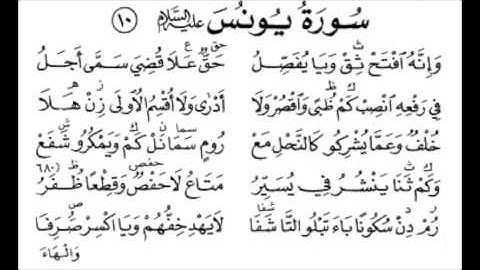 سُورَةُ يُونُسَ عليه السلام ١٠
وَإِنَّهُ افْتَحْ ثِقْ وَيَا يُفَصِّلُ حَقٌّ عَلَا قُضِيَ سَمَّى أَجَلُ
فِي رَفْعِهِ انْصِبْ كَمْ ظُبًى وَاقْصُرْ وَلَا أَدْرَى وَلَا أُقْسِمُ الأُولَى زِنْ هَلَا
خُلْفٌ وَعَمَّا يُشْرِكُو كَالنَّحْلِ مَعْ رُومٍ سَمَا نَلْ كَمْ وَيَمْكُرُو شَفَعْ
وَكَمْ ثَنَا يَنْشُرُ فِي يُسَيِّرُ مَتَاعُ لَا حَفْصٌ وَقِطْعًا ظَفَرُ ٦٨٠
رُمْ دِنْ سُكُونًا بَاءَ تَبْلُو التَّا شَفَا لَا يَهِدِّ خِفُّهُمْ وَيَا اكْسِرْ صُرِفَا
وَالْهَاءَ